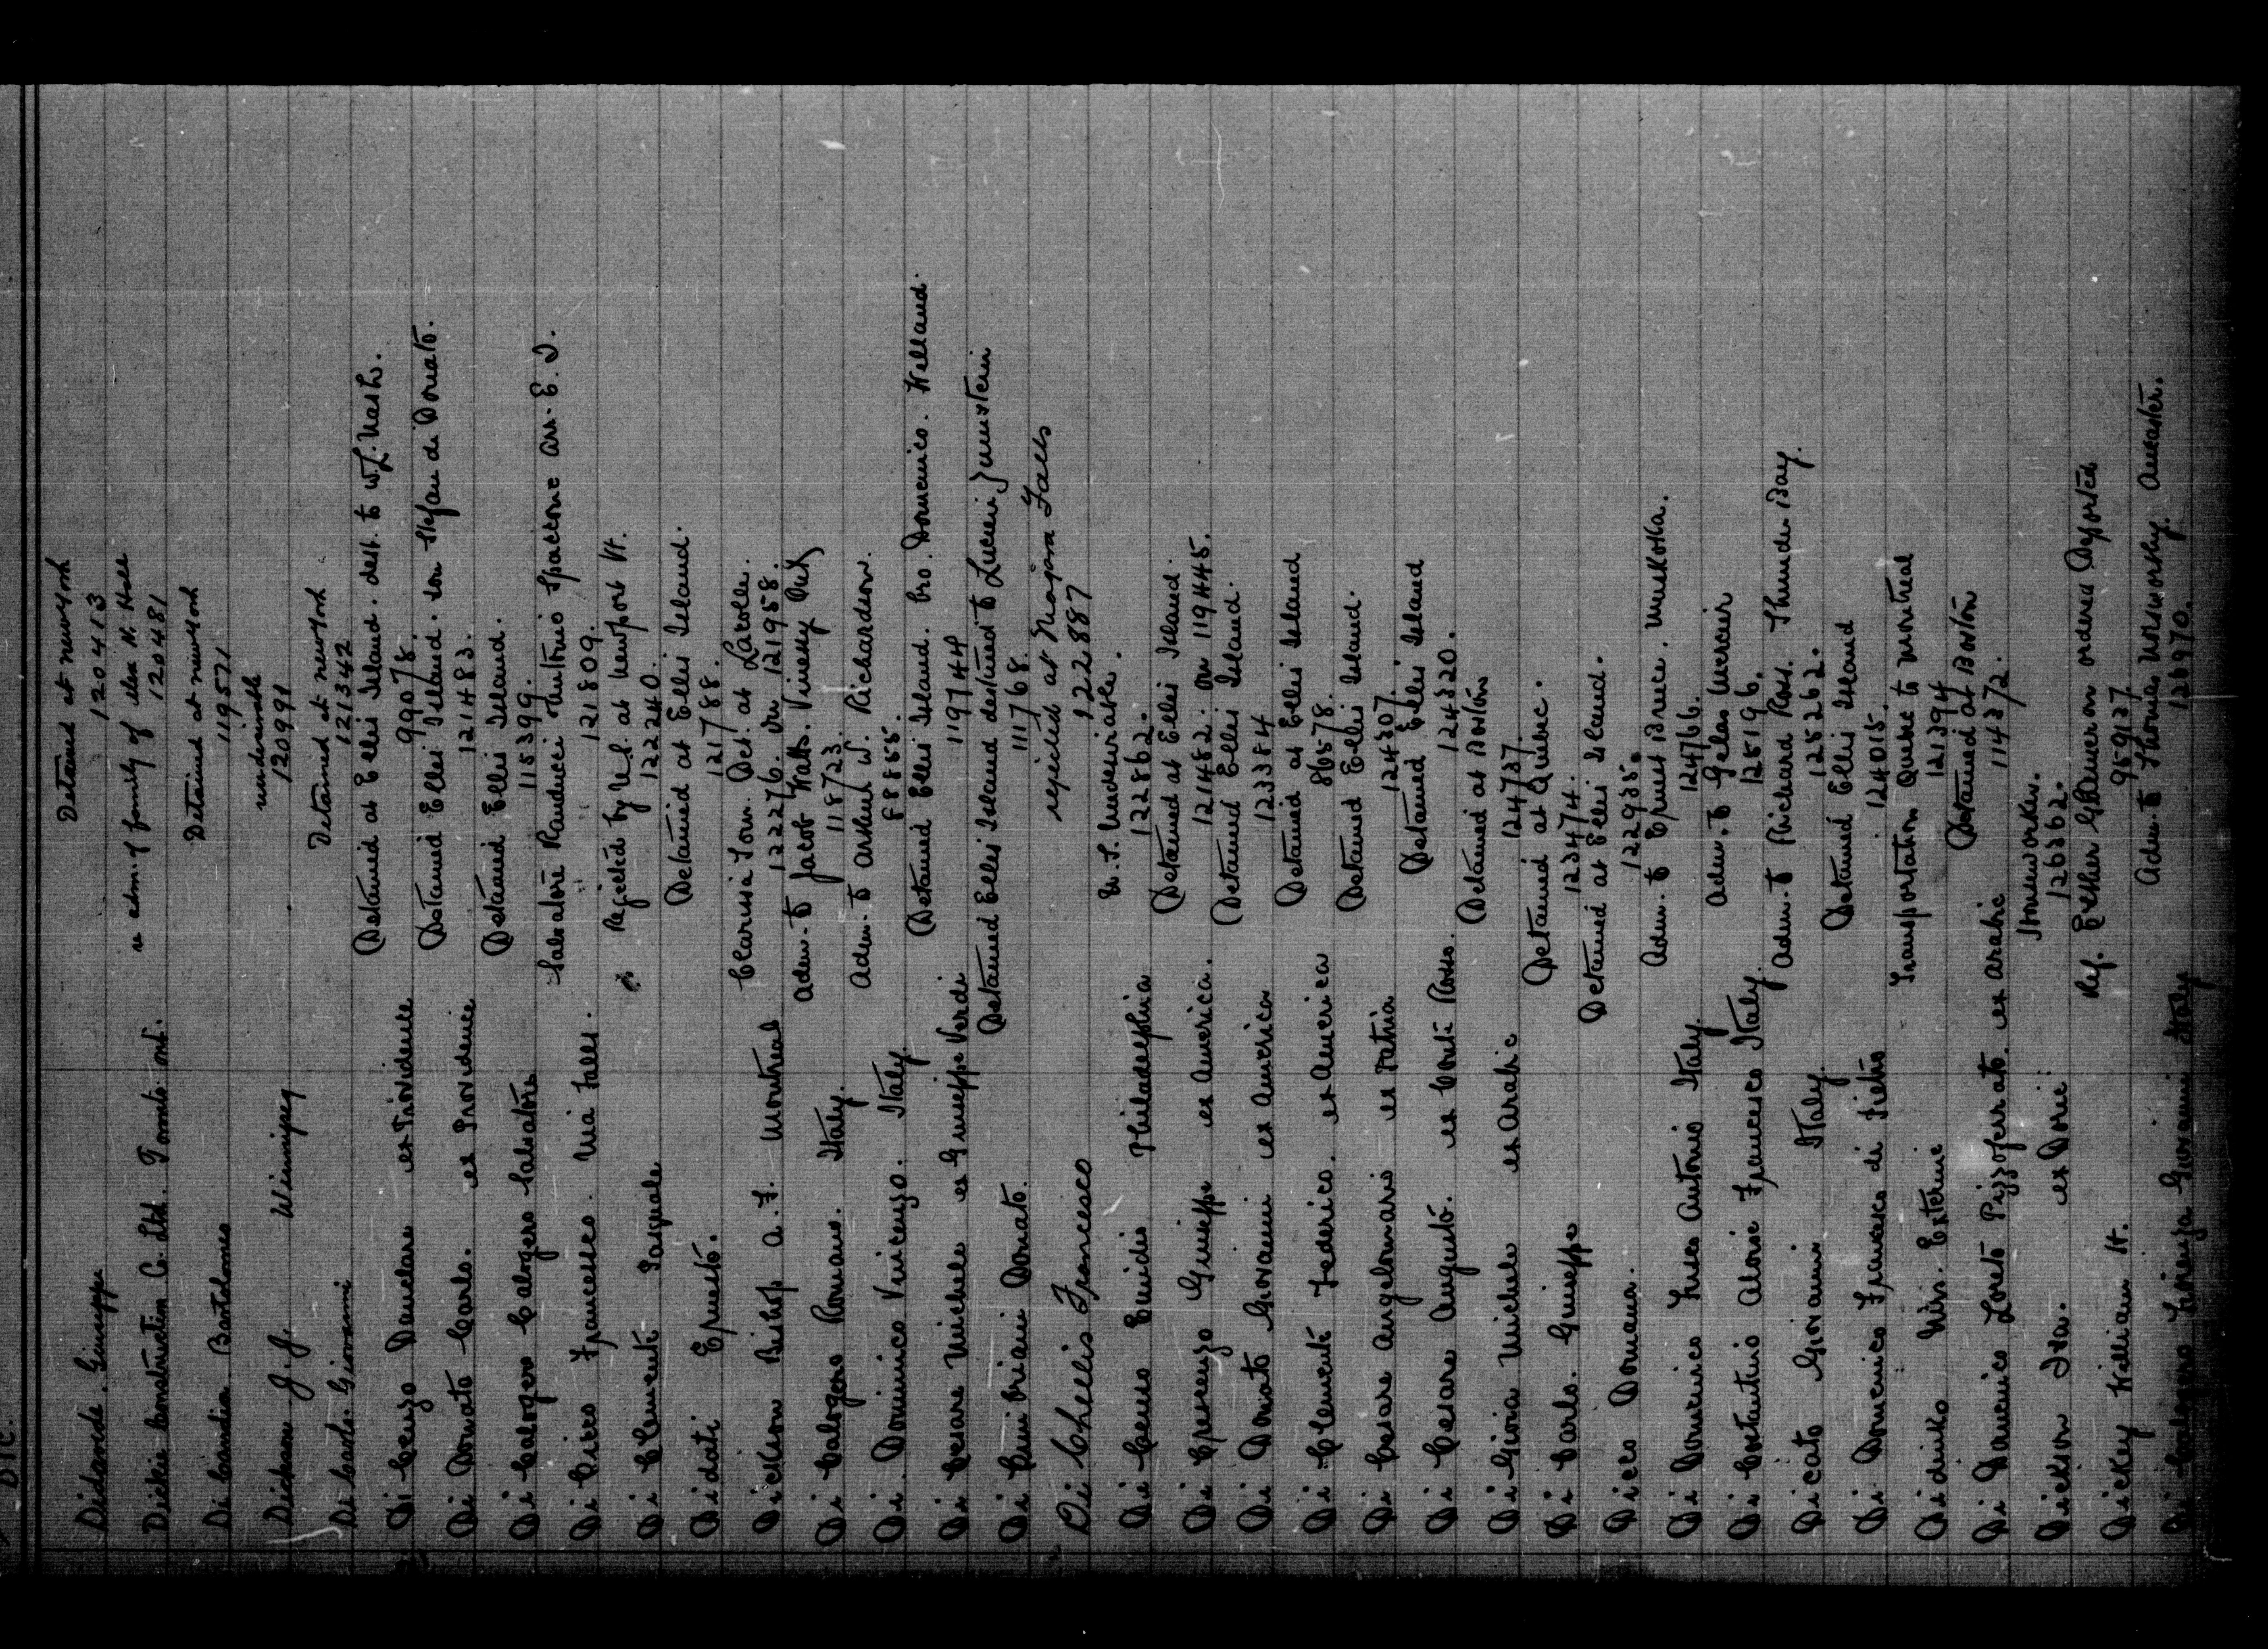 DIC.
Detained at New York
Didonde Giuseppe 120413
re adm. of family of Alex N. Hall
Dickie Construction Co. Ltd. Toronto Ont. 120481
Detained at New York
Di Candia Bartolomeo 119571
undesirable
Dickson J. J. Winnipeg 120991
Detained at New York
Di Carlo Giovanni 121342
Detained at Ellis Island. dest. to W.L. Nash.
Di Cenzo ex Providence 99078
Detained Ellis Island. son Stefan di Donato.
Di Donato Carlo. ex Providence 121483.
Detained Ellis Island.
Di Calogero Calogero Salvatore 115399.
Salvatore Panducci Antonio Spaccone arr. E. I.
Di Cicco Francesco. Nia Falls. 121809.
Rejected by U.S. at Newport Vt.
Di Clemente Pasquale 122240.
Detained at Ellis Island.
Didati Ernesto. 121788.
Clarissa Town. Det. at Lacolle.
Dickson Bishop A. F. Montreal 122276. or 121958.
Adm. to Jacob Watts. Vinessy Ont
Di Calogero Romano. Italy. 118723.
Adm. to Arthur W. Richardson.
Di Dominico Vincenzo. Italy. F8855.
Detained Ellis Island. bro. Domenico. Welland.
Di Cesare Michele ex Giuseppe Verdi 119744
Detained Ellis Island destined to Lucien
Di Donato. 111768.
rejected at Niagara Falls
Di Chellis Francesco 122887
U.S. Undesirable.
Di Censo Emidio Philadelphia 122862.
Detained at Ellis Island.
Di Crescenzo Giuseppe ex America. 121482. or 119445.
Detained Ellis Island.
Di Donato Giovanni ex America 123384
Detained at Ellis Island
Di Clemente Federico. ex America 86578.
Detained Ellis Island.
Di Cesare Angelomario ex Patria 124307.
Detained Ellis Island
Di Cesare Augusto. ex Conte Rosso. 124320.
Detained at Boston
Di Gioia Michele ex Arabic 124737.
Detained at Quebec.
Di Carlo. Giuseppe 123474.
Detained at Ellis Island.
Dicco Domana. 122935.
Adm. to Ernest Bruce. Muskoka.
Di Domenico Antonio Italy. 124766.
Adm. to Gelas Mercier
Di Costantino Aloise Francesco Italy. 125196.
Adm. to Richard Ross. Thunder Bay.
Dicato Giovanni Italy. 125262.
Detained Ellis Island
Di Domenico Francesco di Pietro 124015.
Transportation Quebec to Montreal
Didinko 121394
Detained at Boston
Di Damico Loreto Pizzoferrato. ex Arabic 114372.
Houseworker.
Dickson Iva. ex Doric 126362.
Ref. Esther Glameron ordered Deported
Dickey William H. 959137.
Adm. to Thomas Worsworthy. Ancaster.
Di Calogero Giovanni Italy 126970.